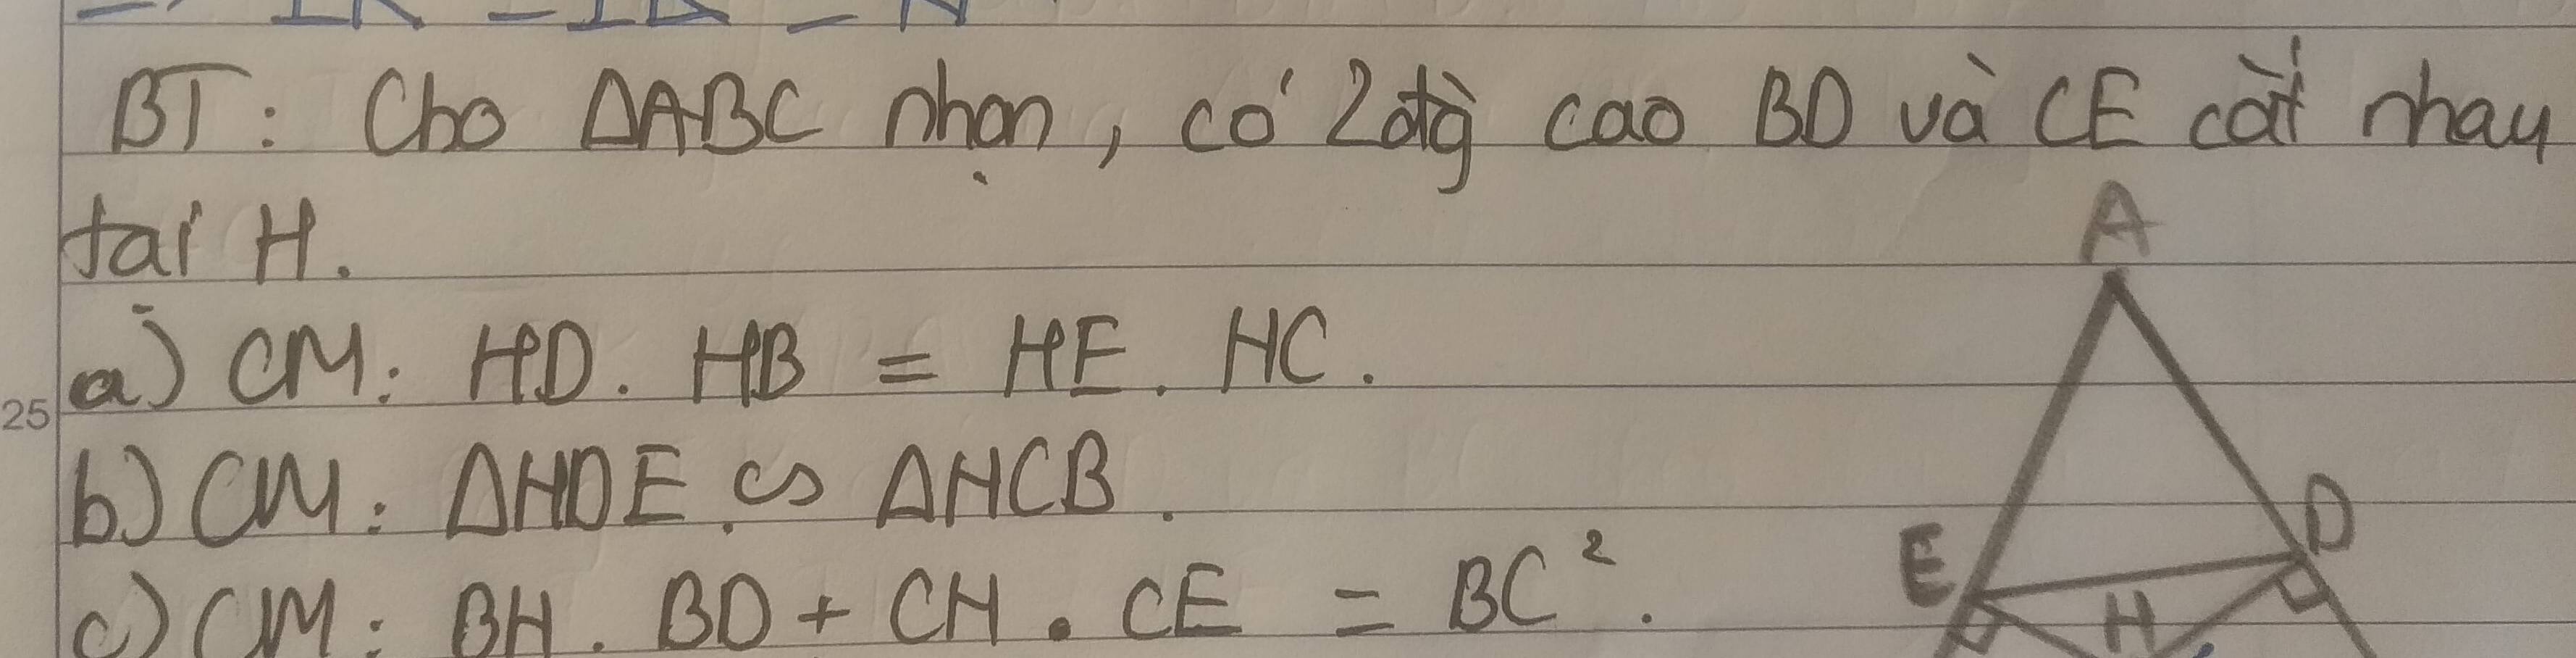 BT: Cho ΔABC nhọn, có 2 đtg̀ cao BD và CE cắt nhau
tại H.
A
a) CM: HD. HB = HE. HC.
25
b) CM: ΔHDE ᔕ ΔHCB.
D
E
c) CM: BH. BD + CH. CE = BC².
H